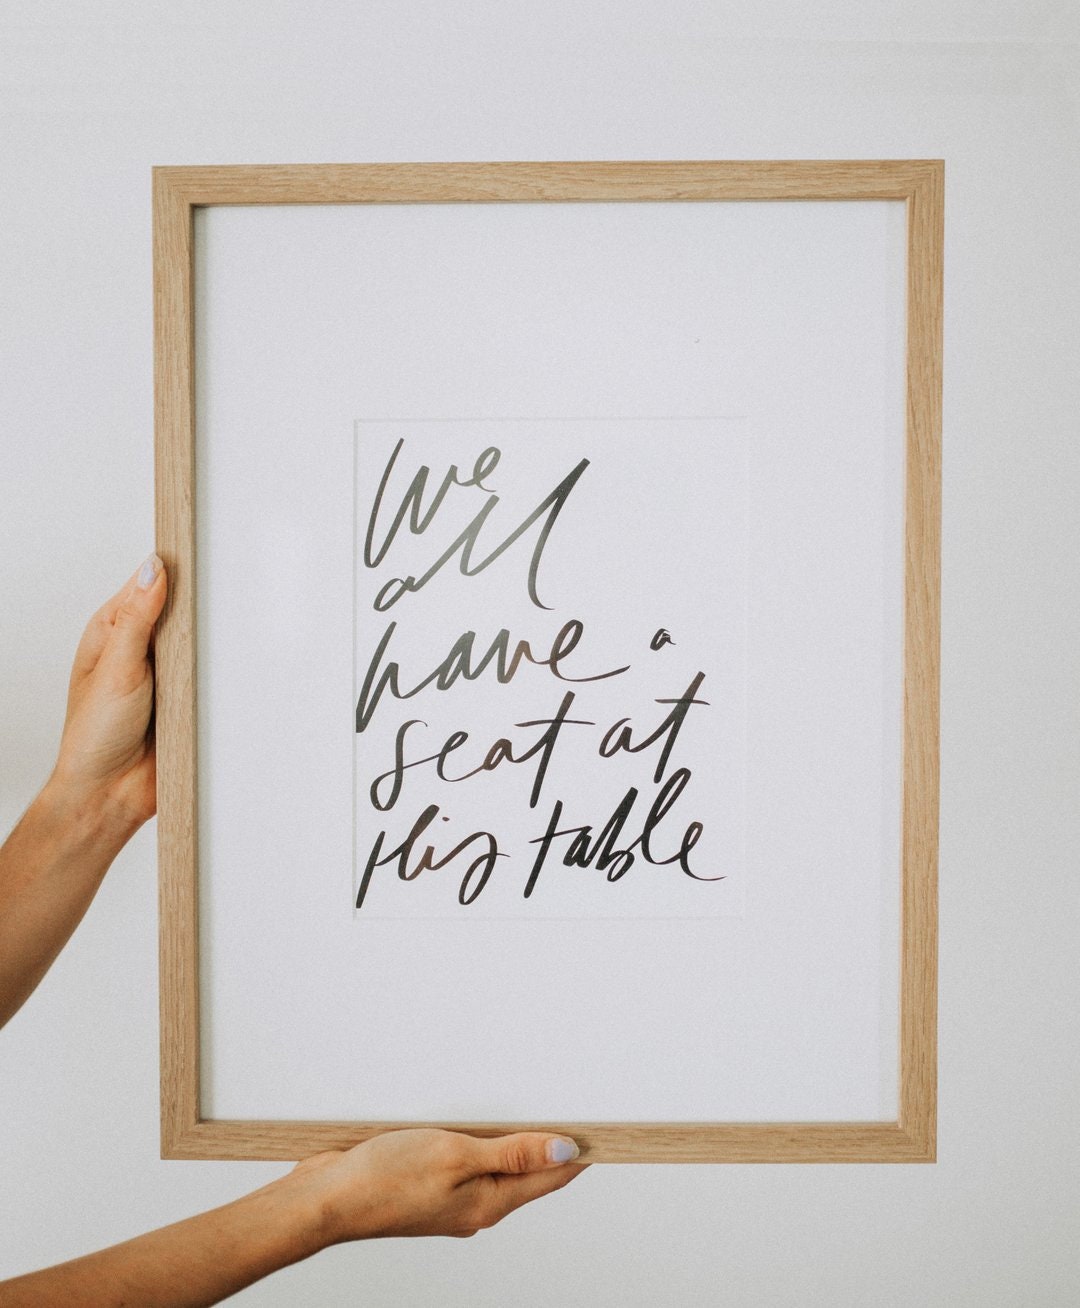 We
all
have a
seat at
this table